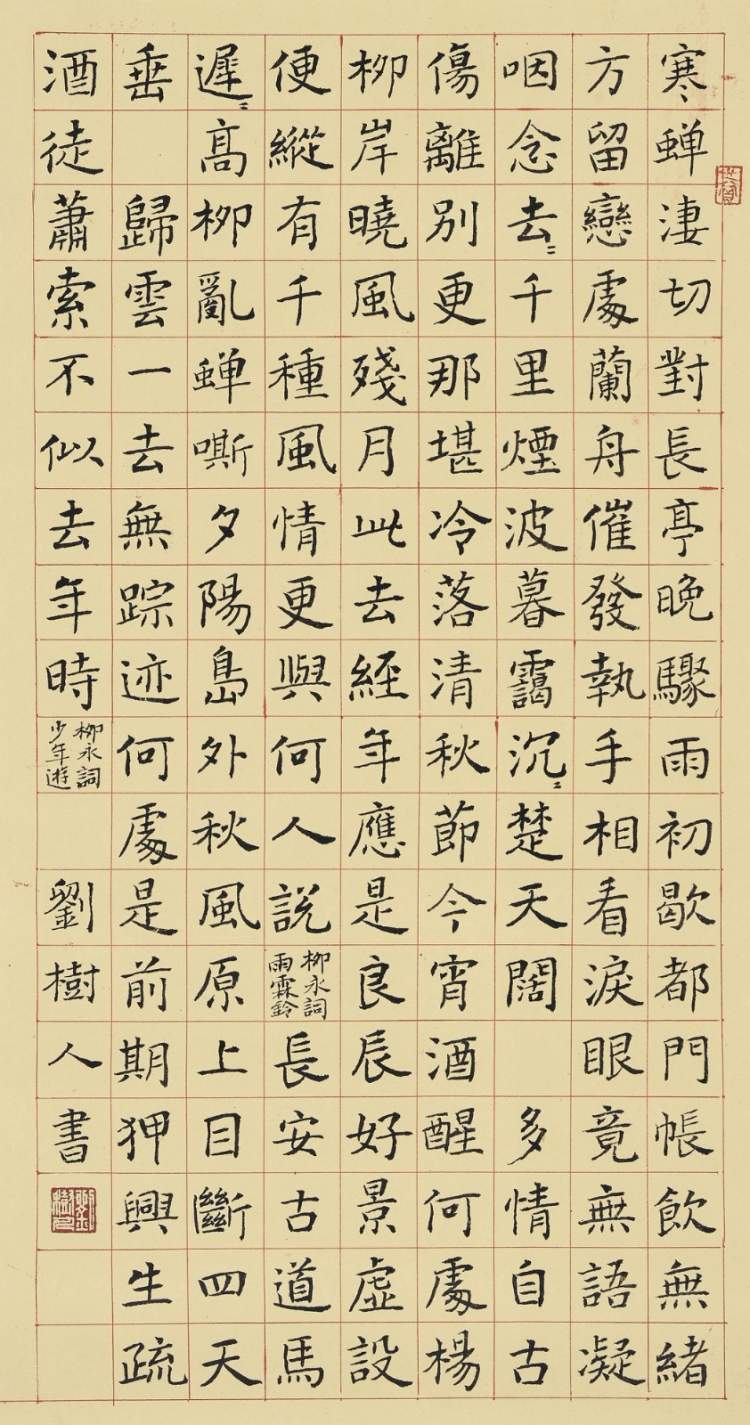 寒蝉淒切對長亭晚驟雨初歇都門帳飲無緒
方留戀處蘭舟催發執手相看淚眼竟無語凝
咽念去〻千里煙波暮靄沉〻楚天闊　多情自古
傷離別更那堪冷落清秋節今宵酒醒何處楊
柳岸曉風殘月此去經年應是良辰好景虛設
便縱有千種風情更與何人說柳永詞雨霖鈴長安古道馬
遲〻高柳亂蝉嘶夕陽島外秋風原上目斷四天
垂　歸雲一去無踪迹何處是前期狎興生疏
酒徒蕭索不似去年時柳永詞少年遊　劉樹人書